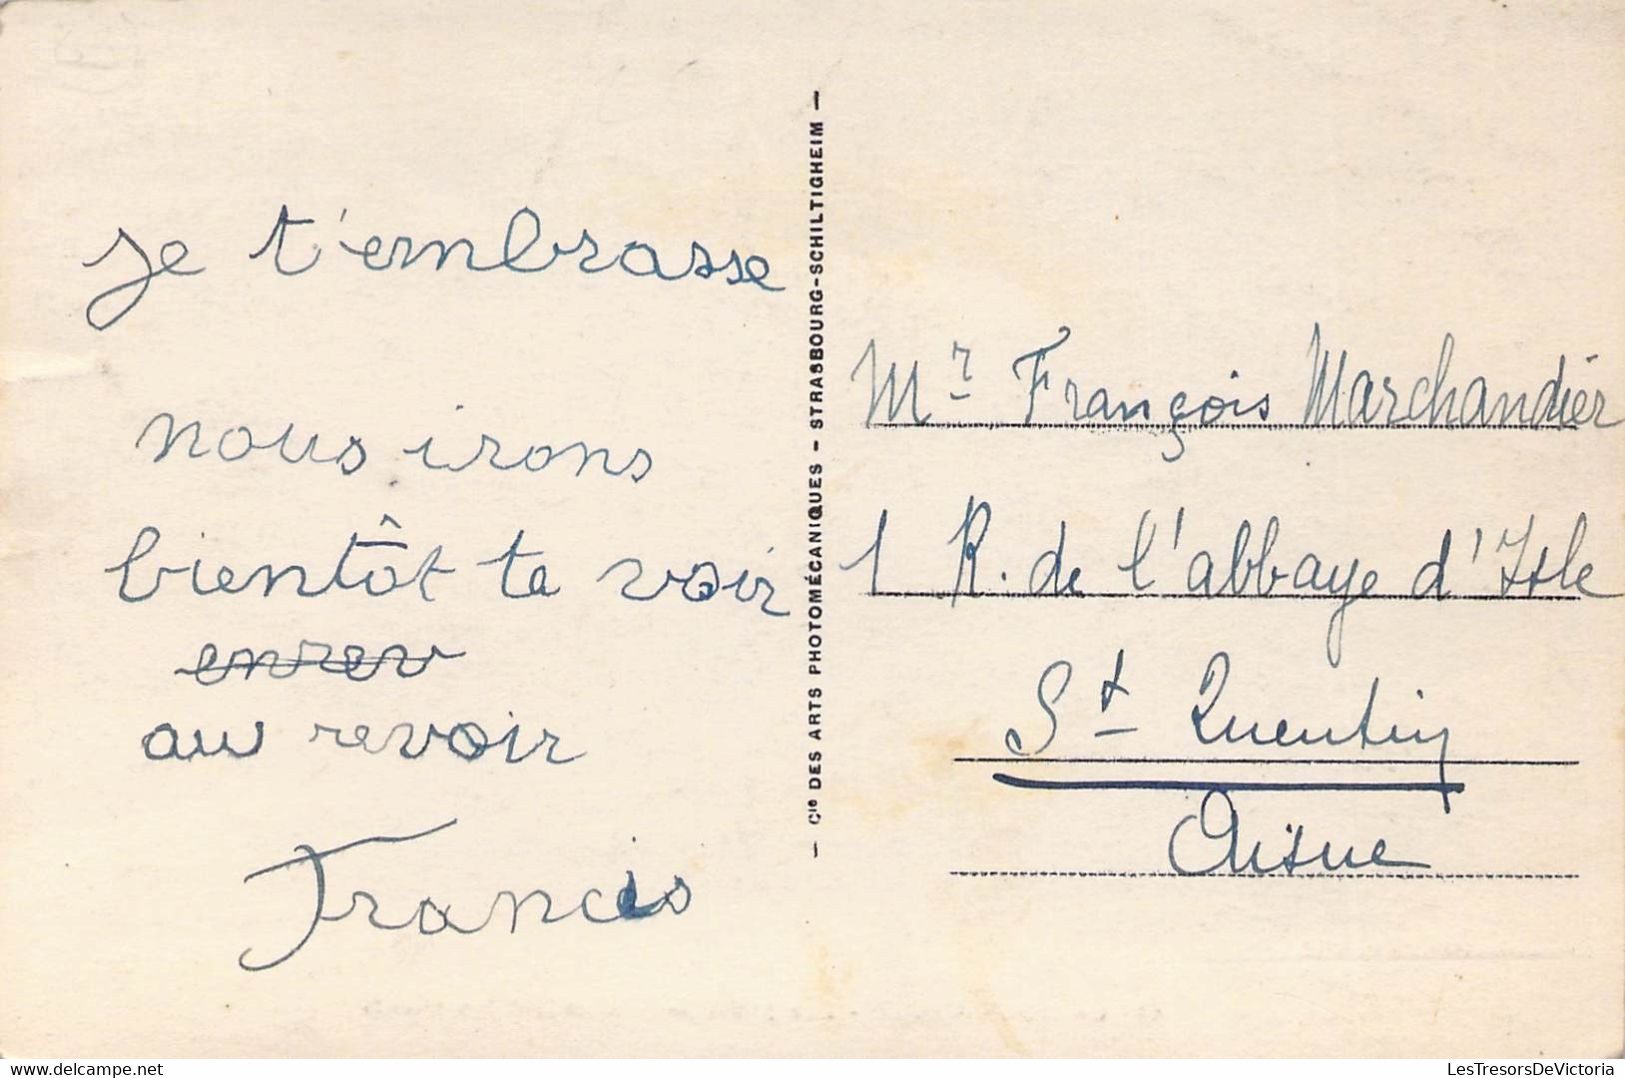 je t'embrasse
nous irons
bientôt te voir
enrev
au revoir
Francis
— Cie DES ARTS PHOTOMÉCANIQUES - STRASBOURG-SCHILTIGHEIM —
Mr François Marchandier
1 R. de l'abbaye d'Isle
St Quentin
Aisne
LesTresorsDeVictoria
delcampe.net